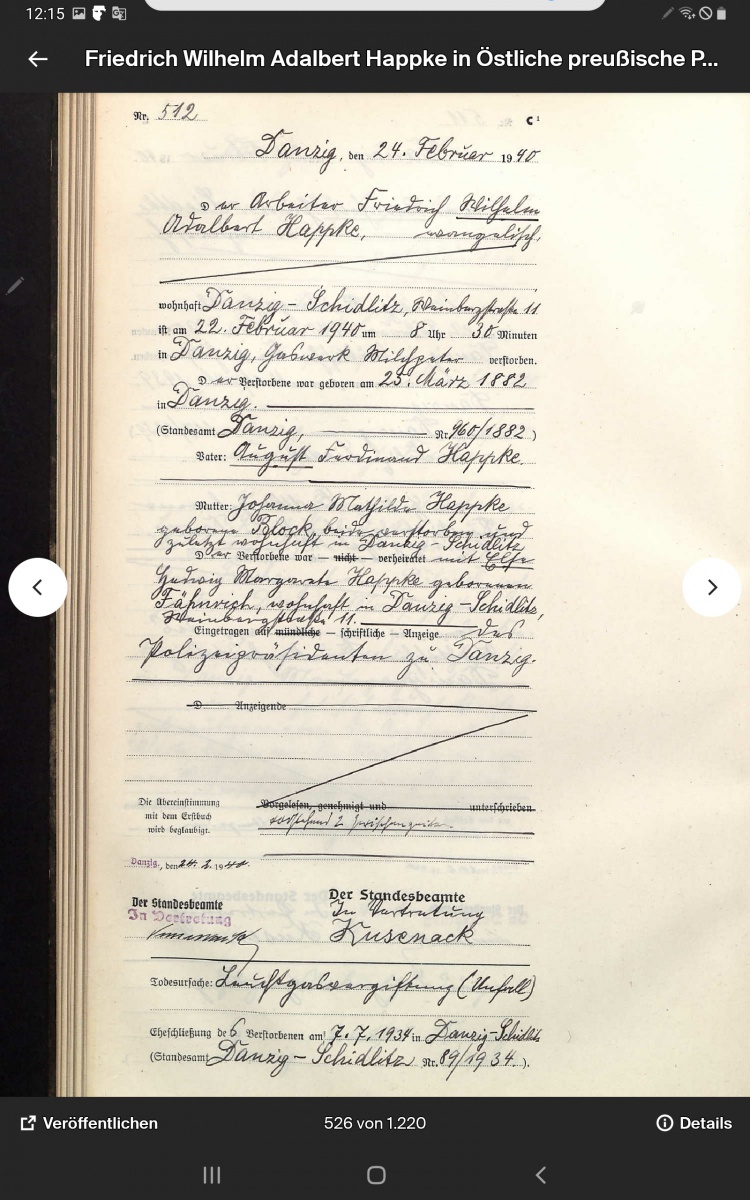 12:15
Friedrich Wilhelm Adalbert Happke in Östliche preußische P...
Nr. 512
C¹
Danzig, den 24. Februar 1940
Der Arbeiter Friedrich Wilhelm
Adalbert Happke, evangelisch,
wohnhaft Danzig - Schidlitz, Weinbergstraße 11
ist am 22. Februar 1940 um 8 Uhr 30 Minuten
in Danzig, Gaswerk Milchpeter verstorben.
Der Verstorbene war geboren am 25. März 1882
in Danzig.
(Standesamt Danzig, Nr. 960/1882)
Vater: August Ferdinand Happke.
Mutter: Johanna Mathilde Happke
geborene Block, beide verstorben und
zuletzt wohnhaft in Danzig-Schidlitz
Der Verstorbene war — nicht — verheiratet mit Else
Hedwig Margarete Happke geborenen
Fähnrich, wohnhaft in Danzig-Schidlitz,
Weinbergstraße 11.
Eingetragen auf mündliche — schriftliche — Anzeige des
Polizeipräsidenten zu Danzig.
D Anzeigende
Die Übereinstimmung
mit dem Erstbuch
wird beglaubigt.
Vorgelesen, genehmigt und unterschrieben
vorstehend 2 Zwischenzeilen
Danzig, den 24. 2. 1940.
Der Standesbeamte
In Vertretung
Der Standesbeamte
In Vertretung
Kusenack
Todesursache: Leuchtgasvergiftung (Unfall)
Eheschließung des Verstorbenen am 7.7.1934 in Danzig-Schidlitz
(Standesamt Danzig - Schidlitz Nr. 89/1934.).
Veröffentlichen
526 von 1.220
Details